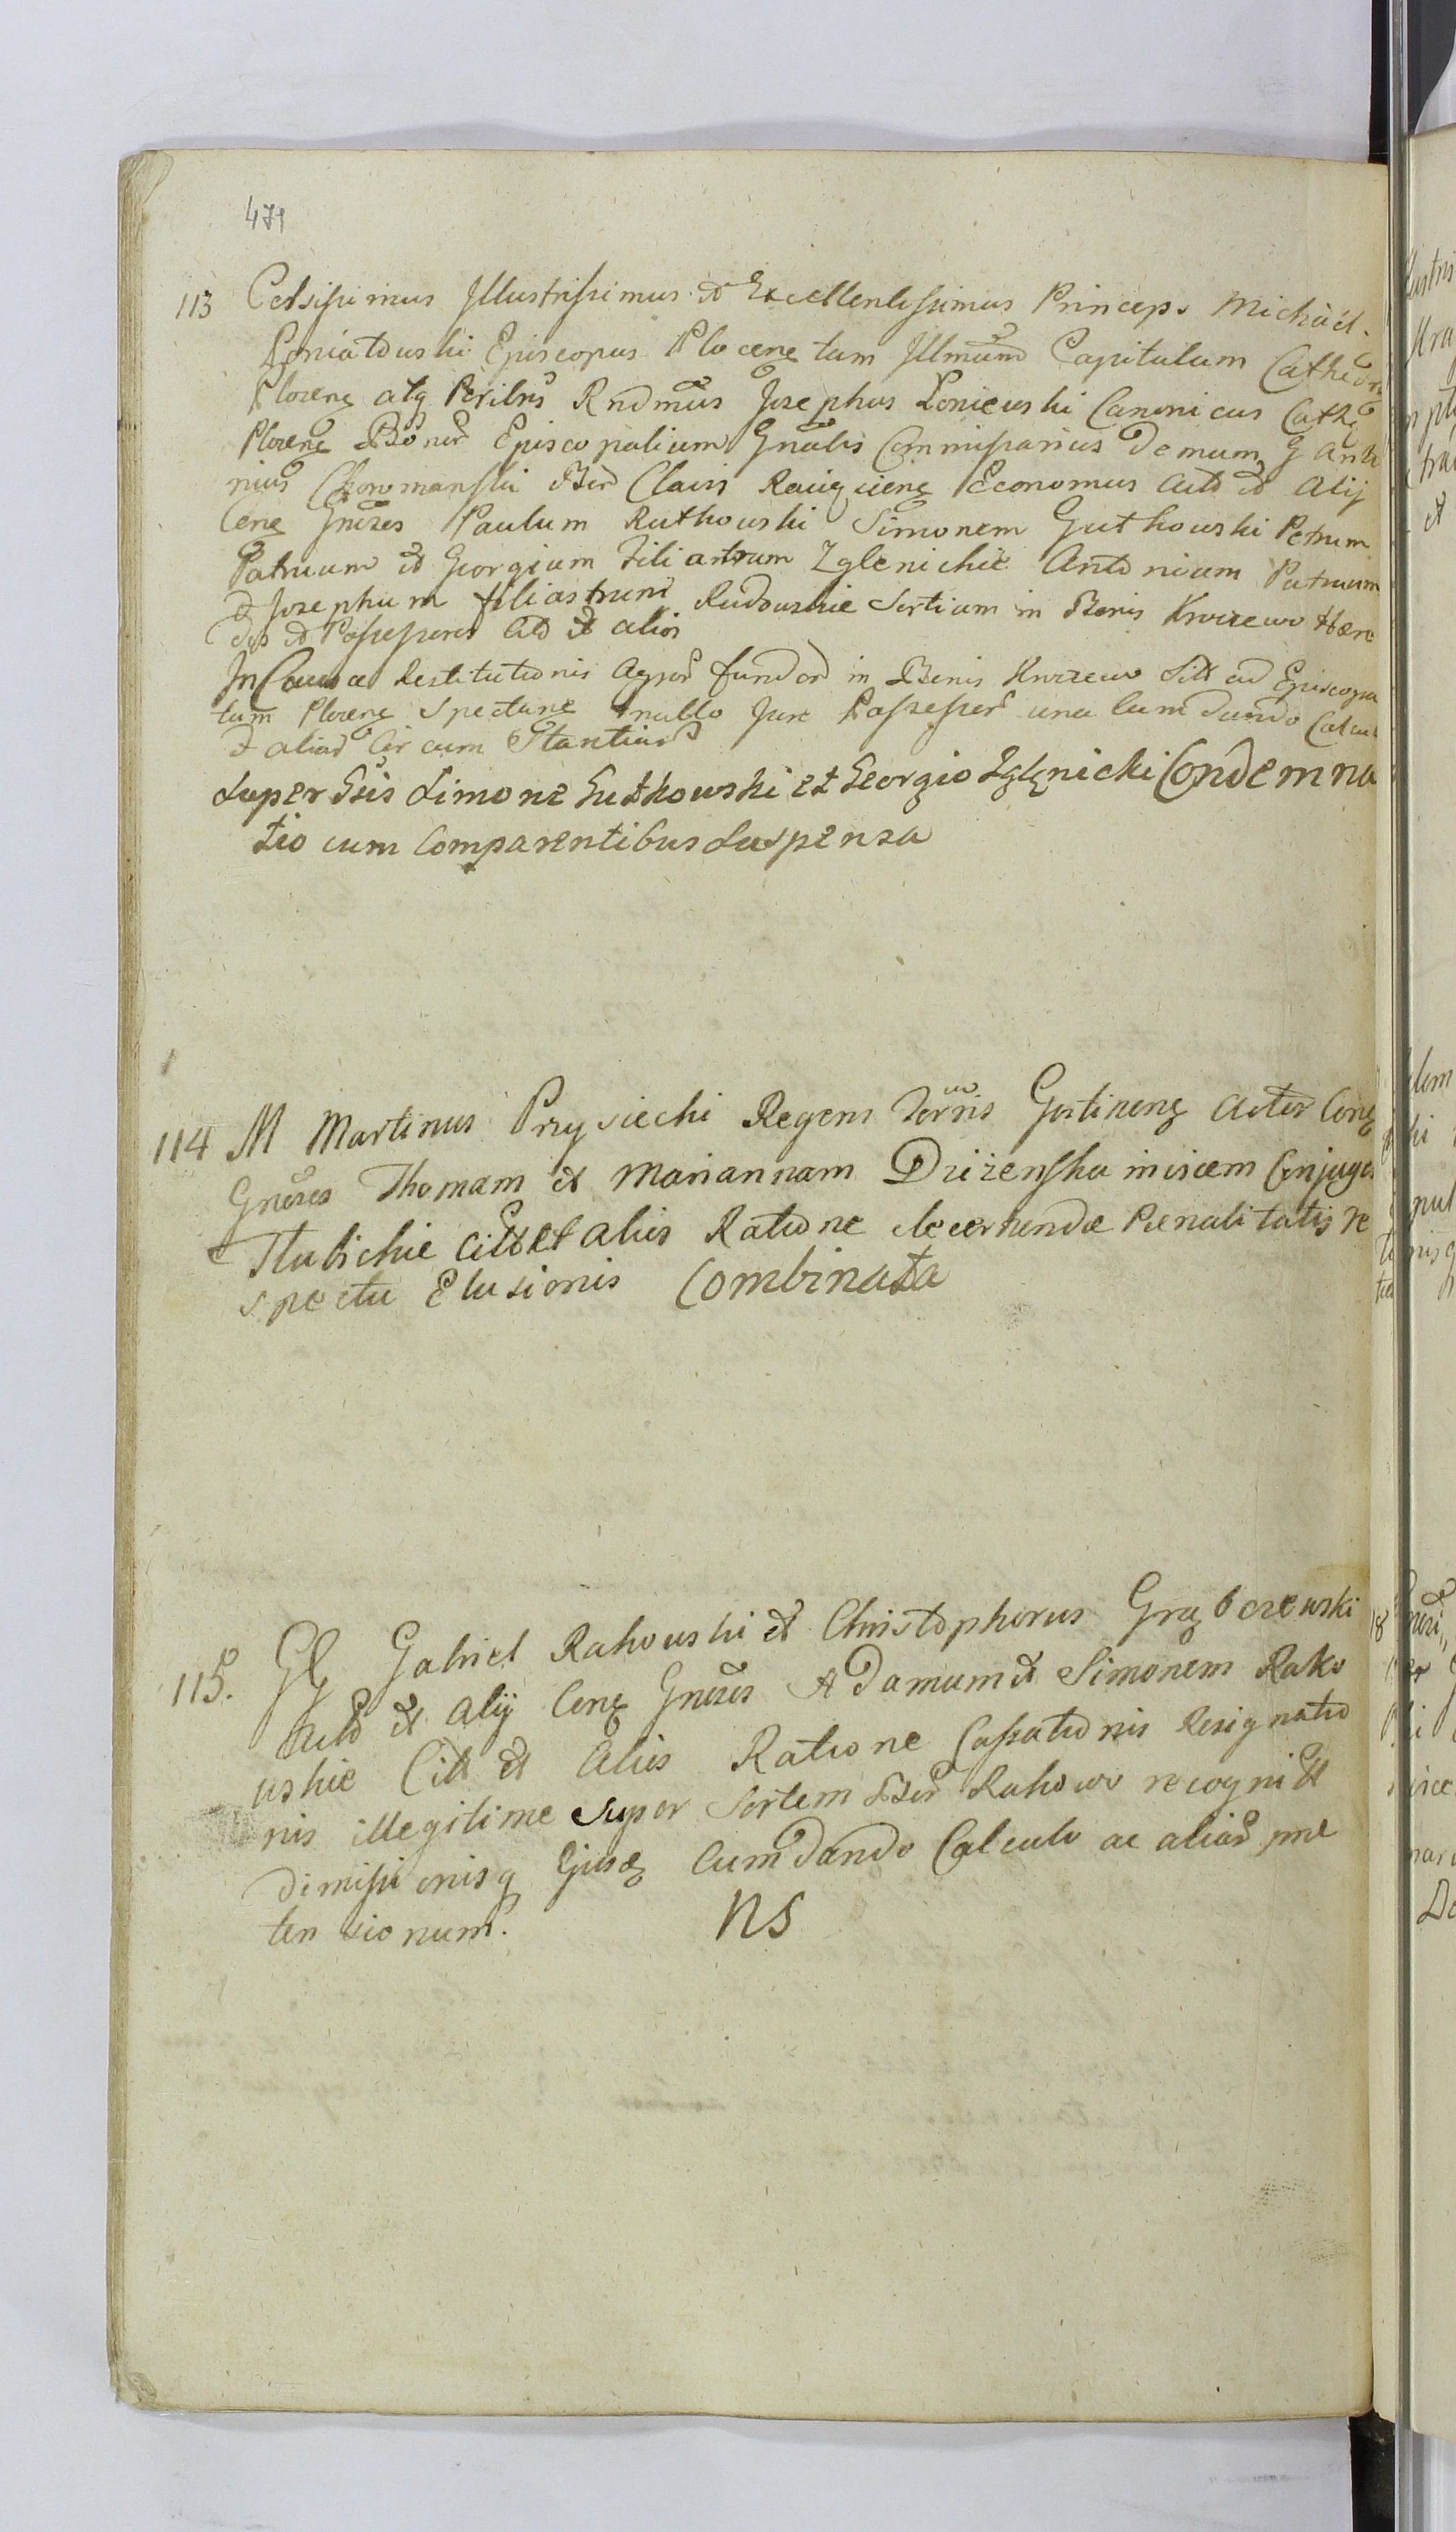 471
113 Celsissimus Illustrissimus et Excellentissimus Princeps Michaël
Poniatowski Episcopus Plocenę tum Illmum Capitulum Cathedr
Plocenę atq Perillris Rndmus Josephus Łoniewski Canonicus Cathę
Plocenę Bonor Episcopalium Gnalis Commissarius demum G Anto
nius Chonomanski Bor Clavis Raciązienę Œconomus Act et Alij
Cenę Gnoses Paulum Rutkowski Simonem Gutkowski Petrum
Patruum et Georgium Filiastrum Zglenickie Antonium Patruum
et Josephum filiastrum Rudowskie Sortium in Bonis Knizewo Hære
des et Possessores Cit et alios
In Causa Restitutionis Agror fundor in Bonis Knizewo Sitt ad Episcopa
tum Plocenę Spectanę nullo Jure Possessor una Cum dando Calcul
et aliar Circum Stantiar
Super Gsis Simone Gutkowski et Georgio Zglenicki Condemna
tio cum Comparentibus Suspensa
114 M Martinus Przysiecki Regens Terris Gostinenę Actor Conę
Gnoses Thomam et Mariannam Drizenska invicem Conjuges
Tlubickie Citt et alios Ratione decernendæ Pœnalitatis re
spectu Elusionis Combinata
115. GG Gabriel Rakowski et Christophorus Grąbczewski
Act et Alij Conę Gnoses Adamum et Simonem Rako
wskie Citt et Alios Ratione Cassationis Resignatio
nis illegitime Super Sortem Bor Rakowo recognitt
Dimissionisq Ejusdę Cum dando Calculo ac aliar præ
tensionum. NS